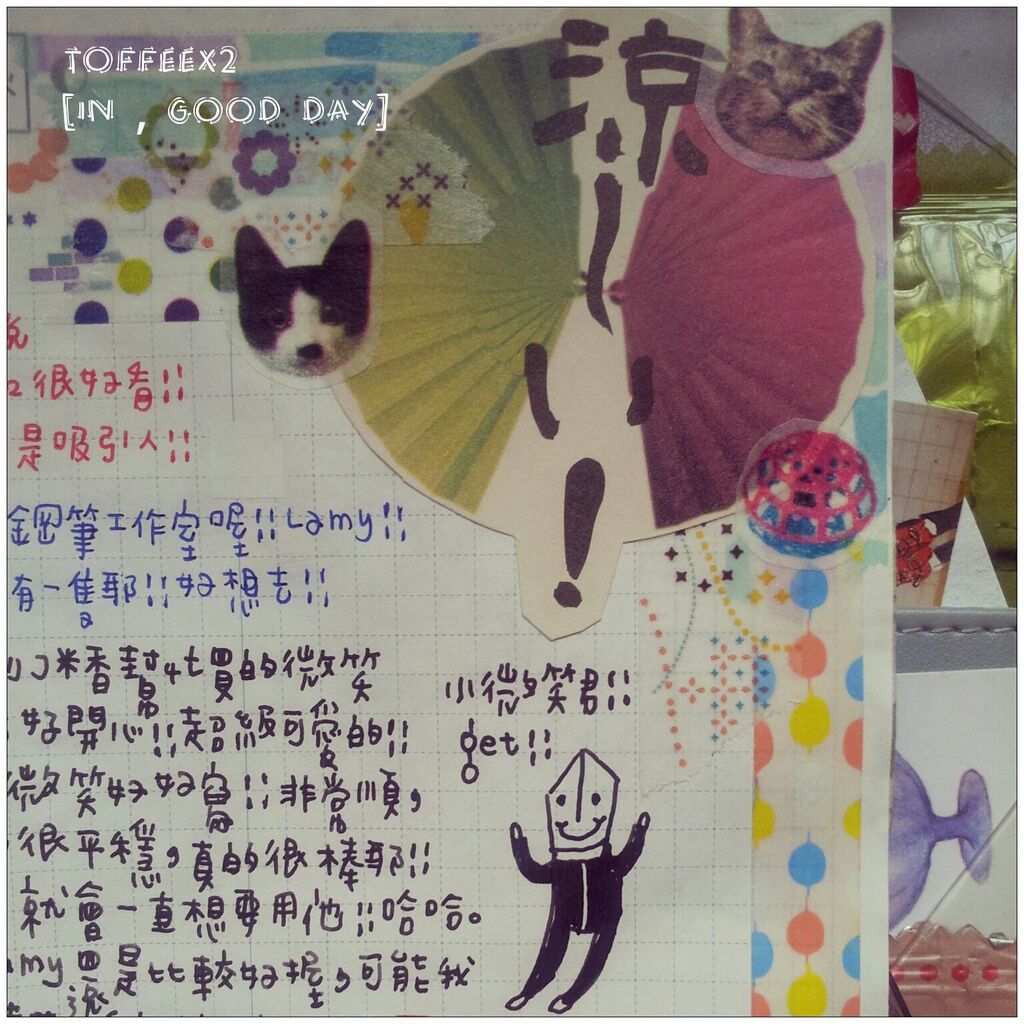 TOFFEEX2
[IN , GOOD DAY]
涼
!
很好看!!
是吸引人!!
鋼筆工作室喔!!Lamy!!
有一隻耶!!好想去!!
買的微笑
好開心!!超級可愛的!!
微笑好好寫!!非常順,
很平穩,真的很棒耶!!
就會一直想要用他!!哈哈。
my 還是比較好握,可能我
小微笑君!!
get!!